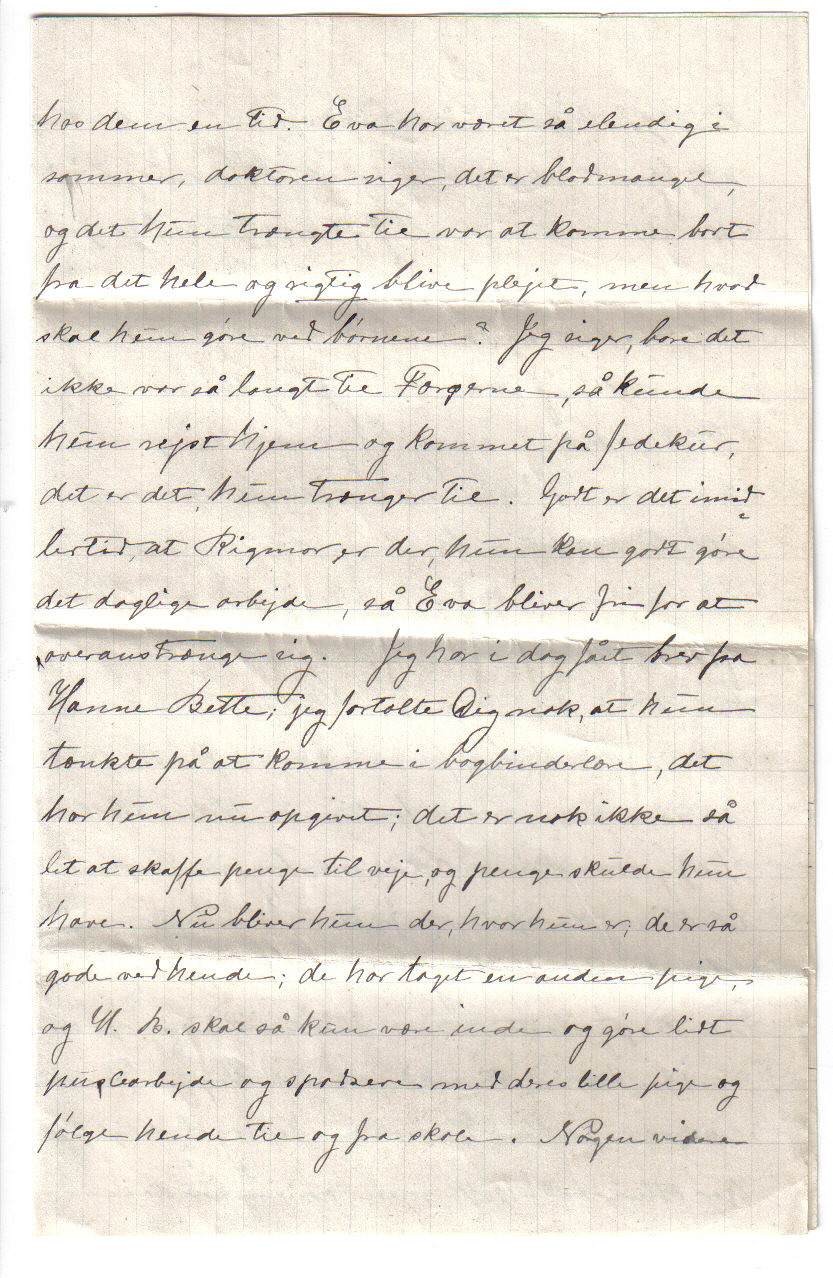 hos dem en tid. Eva har været så elendig i
sommer, doktoren siger, det er blodmangel,
og det hun trængte til var at komme bort
fra det hele og rigtig blive plejet, men hvad
skal hun göre ved börnene? Jeg siger, bare det
ikke var så langt til Færøerne, så kunde
hun rejst hjem og kommet på fedekur,
det er det, hun trænger til. Godt er det imid-
lertid, at Rigmor er der, hun kan godt göre
det daglige arbejde, så Eva bliver fri for at
overanstrænge sig. Jeg har i dag fået brev fra
Hanne Bette; jeg fortalte Dig nok, at hun
tænkte på at komme i bogbinderlære, det
har hun nu opgivet; det er nok ikke så
let at skaffe penge til veje, og penge skulde hun
have. Nu bliver hun der, hvor hun er; de er så
gode ved hende; de har taget en anden pige,
og H. B. skal så kun være inde og göre lidt
puslearbejde og spadsere med deres lille pige og
fölge hende til og fra skole. Nogen videre